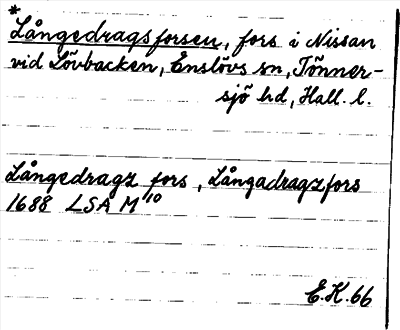 *
Långedragsforsen, fors i Nissan
vid Lövbacken, Enslövs sn, Tönner-
sjö hd, Hall. l.
Långedragz fors, Långadragzfors
1688 LSA M 10
E.K. 66